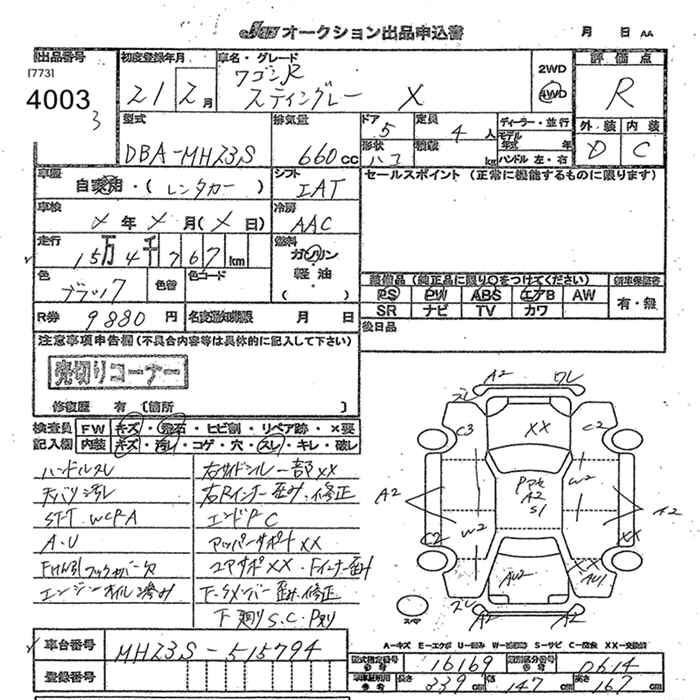 JAA オークション出品申込書 月 日 AA
出品番号 初度登録年月 車名・グレード 評価点
[773] 4003 3
21 年 2 月 ワゴンR スティングレー X
2WD 4WD R
型式 排気量 ドア 定員 ディーラー・並行 外装 内装
DBA-MH23S 660cc 5 4人 D C
形状 ハコ 積載 kg モデル年式 年 ハンドル 左・右
車歴 自家用・(レンタカー) シフト IAT セールスポイント (正常に機能するものに限ります)
車検 X 年 X 月(X 日) 冷房 AAC
走行 15万4千767km 燃料 ガソリン 軽油 ( )
色 ブラック 色替 色コード
装備品(純正品に限り○をつけてください) 新車保証書
PS PW ABS エアB AW 有・無
SR ナビ TV カワ
R券 9880円 名変通知期限 月 日 後日品
注意事項申告欄(不具合内容等は具体的に記入して下さい)
売切りコーナー
修復歴 有 [箇所 ]
検査員記入欄 FW キズ・飛石・ヒビ割・リペア跡・×要
内装 キズ・汚レ・コゲ・穴・スレ・キレ・破レ
ハンドルスレ 右サイドシルー部XX
天バリ汚レ 右Rインナー歪み・修正
STT WCPA エンドPC
A.U アッパーサポートXX
F牽引フックカバー欠 コアサポXX・Fインナー歪み
エンジンオイルニジみ 下-Sメンバー歪み・修正
下廻りS.C・P別り
A2 ワレ
スレ
C3 XX C2
A2 W2 PPW A2 S1 W2 A2
C2 XX
XX AU1
AW2
スレ
A2
スペア
A-キズ E-エクボ U-凹み W-波修跡 S-サビ C-腐食 XX-交換済
車台番号 MH23S-515794
登録番号
型式指定番号 16169 類別区分番号 0614
長さ 339cm 幅 147cm 高さ 167cm